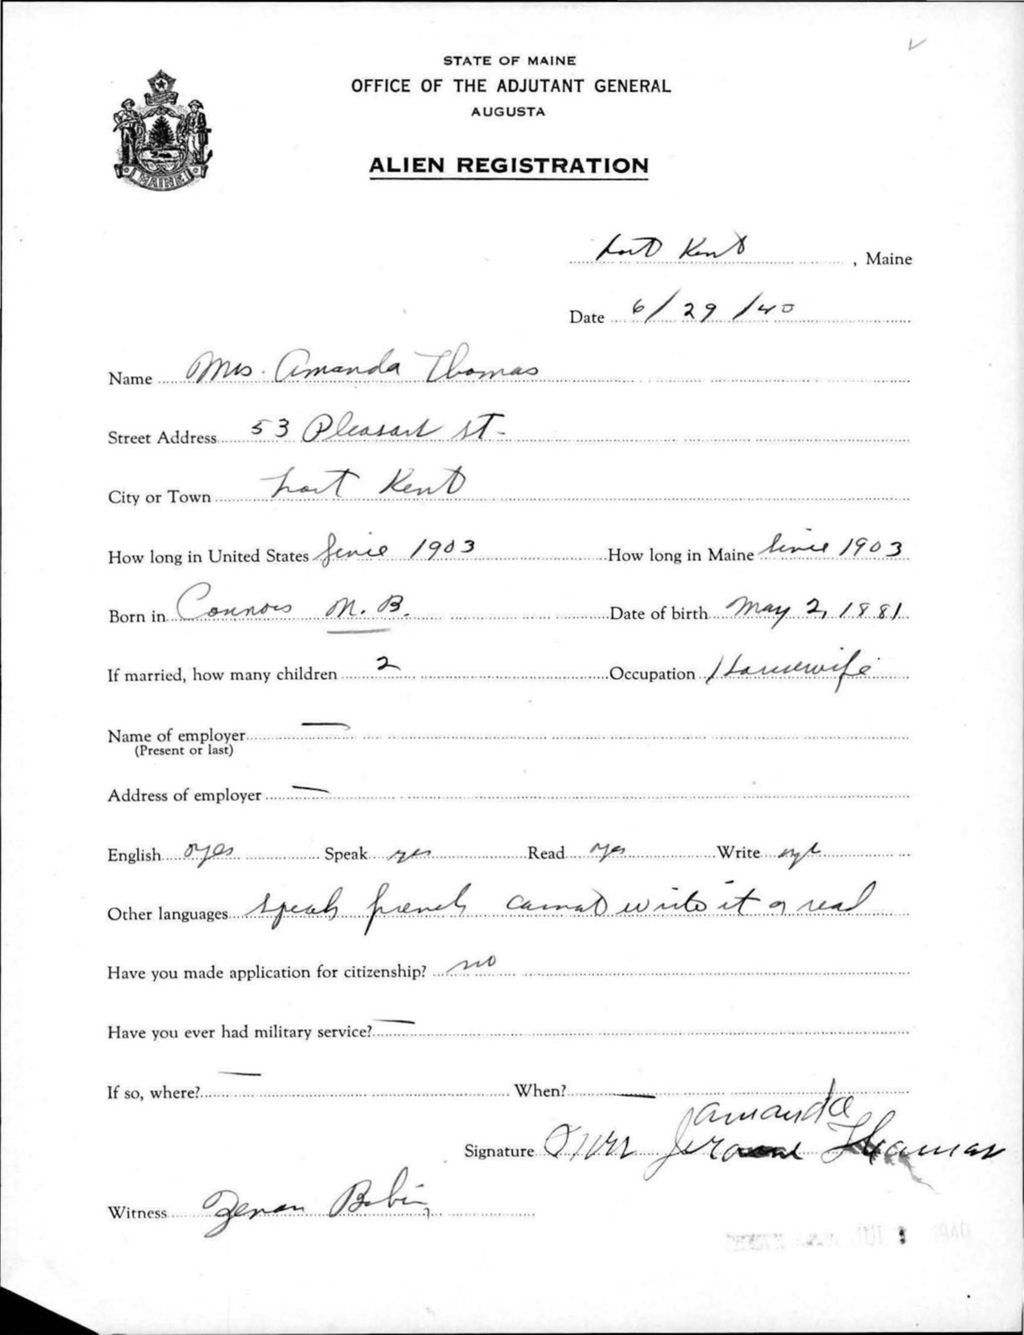 STATE OF MAINE
OFFICE OF THE ADJUTANT GENERAL
AUGUSTA
ALIEN REGISTRATION
MAINE
Fort Kent, Maine
Date 6/29/40
Name Mrs. Amanda Thomas
Street Address 53 Pleasant St.
City or Town Fort Kent
How long in United States Since 1903 How long in Maine Since 1903
Born in Connors N. B. Date of birth May 2, 1881
If married, how many children 2 Occupation Housewife
Name of employer —
(Present or last)
Address of employer —
English yes Speak yes Read yes Write yes
Other languages Speak french cannot write it or read
Have you made application for citizenship? no
Have you ever had military service? —
If so, where? — When? —
Amanda
Signature Mrs Thomas
Witness